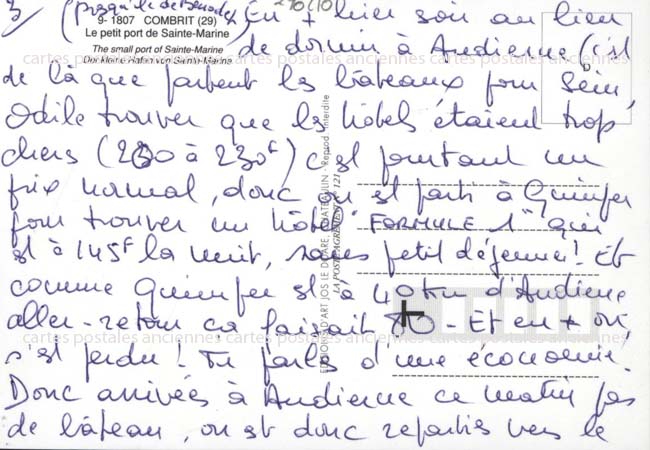 3 (presqu'île de
9- 1807 COMBRIT (29)
Le petit port de Sainte-Marine
The small port of Sainte-Marine
Der kleine Hafen von Sainte-Marine
En + hier soir au lieu
de dormir à Audierne (c'est
de là que partent les bâteaux pour Sein,
Odile trouver que les hôtels étaient trop
chers (200 à 230F) c'est pourtant un
prix normal, donc on est parti à Quimper
pour trouver un hôtel "FORMULE 1" qui
est à 145F la nuit, sans petit déjeuner! Et
comme Quimper est à 40 km d'Audierne
aller-retour ça faisait 80 - Et en + on
s'est perdu! Tu parles d'une économie!
Donc arrivées à Audierne ce matin pas
de bâteau, on est donc reparties vers le
EDITIONS D'ART JOS LE DOARE - CHATEAULIN - Reprod. Interdite
LA POSTE AGREMENT N° 121
cartes postales anciennes